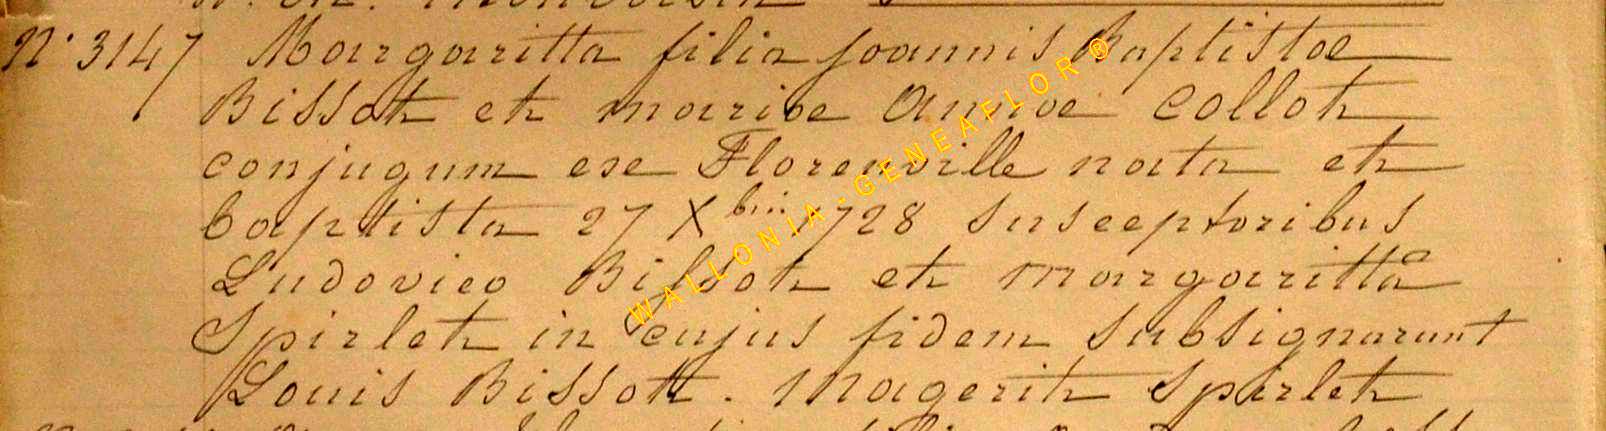 N° 3147 Margaritta filia Joannis Baptistae
Bissot et mariae Annae Collot
conjugum exe Florenville nata et
baptista 27 Xbris 1728 Susceptoribus
Ludovico Bissot et Margaritta
Spirlet in cujus fidem Subsignarunt
Louis Bissott. Magerit Spirlet
WALLONIA-GENEAFLOR®